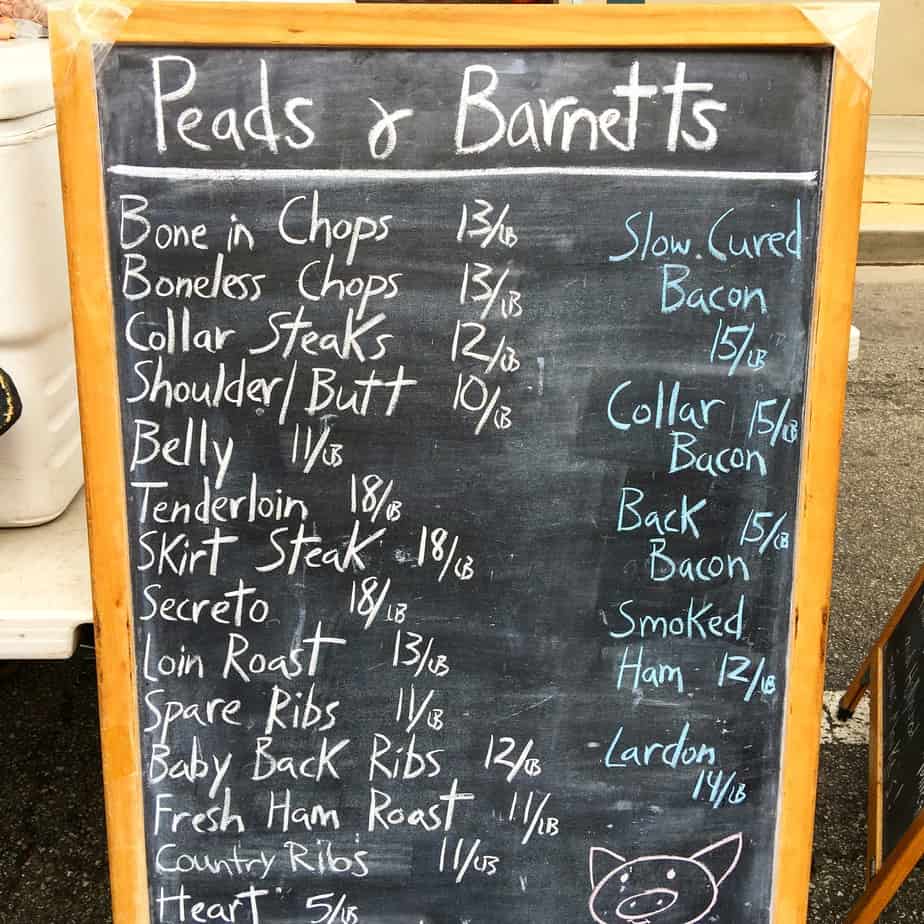 Peads & Barnetts
Bone in Chops 13/LB
Boneless Chops 13/LB
Collar Steaks 12/LB
Shoulder/Butt 10/LB
Belly 11/LB
Tenderloin 18/LB
Skirt Steak 18/LB
Secreto 18/LB
Loin Roast 13/LB
Spare Ribs 11/LB
Baby Back Ribs 12/LB
Fresh Ham Roast 11/LB
Country Ribs 11/LB
Heart 5/LB
Slow Cured
Bacon
15/LB
Collar 15/LB
Bacon
Back 15/LB
Bacon
Smoked
Ham 12/LB
Lardon
14/LB